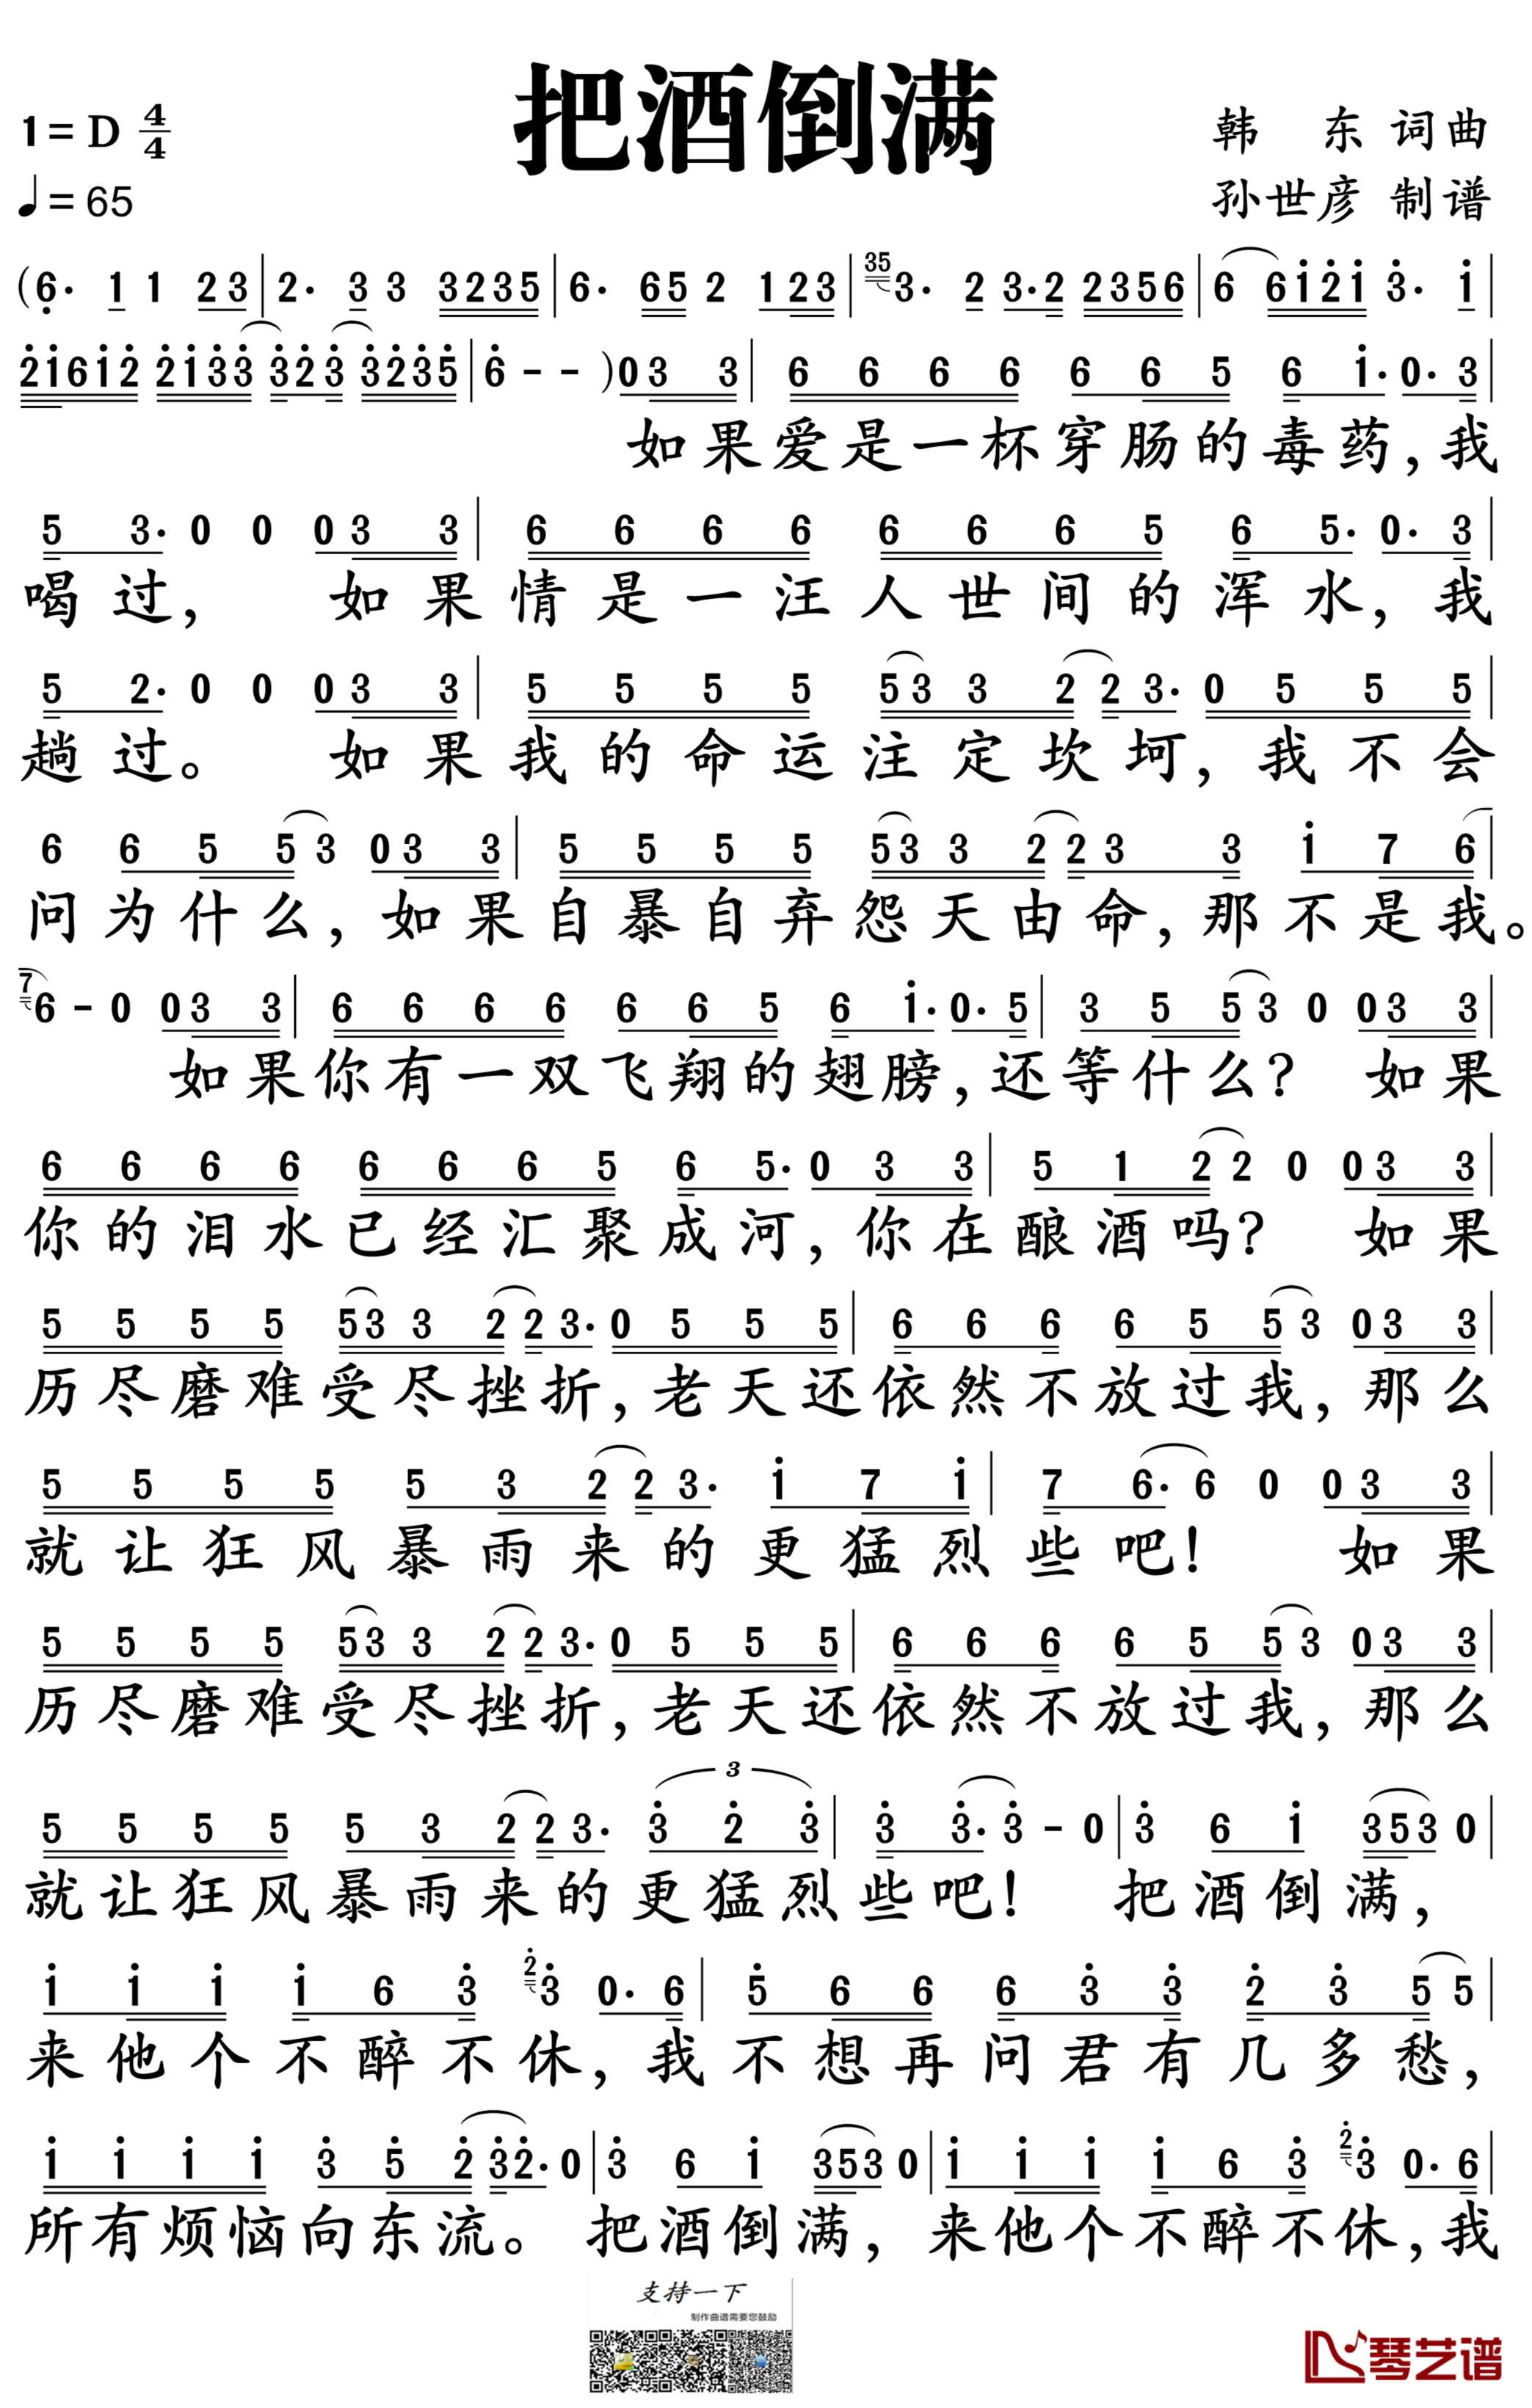 把酒倒满
1=D 4/4
♩=65
韩 东 词曲
孙世彦 制谱
(6̣· 1 1 2 3 | 2· 3 3 3 2 3 5 | 6· 6 5 2 1 2 3 | 35 3· 2 3· 2 2 3 5 6 | 6 6 1̇ 2̇ 1̇ 3̇· 1̇ |
2̇ 1̇ 6 1̇ 2̇ 2̇ 1̇ 3̇ 3̇ 3̇ 2̇ 3̇ 3̇ 2̇ 3̇ 5̇ | 6̇ - - ) 0 3 3 | 6 6 6 6 6 6 5 6 1̇· 0· 3 |
如果爱是一杯穿肠的毒药,我
5 3· 0 0 0 3 3 | 6 6 6 6 6 6 6 5 6 5· 0· 3 |
喝过, 如果情是一汪人世间的浑水,我
5 2· 0 0 0 3 3 | 5 5 5 5 5 3 3 2 2 3· 0 5 5 5 |
趟过。 如果我的命运注定坎坷,我不会
6 6 5 5 3 0 3 3 | 5 5 5 5 5 3 3 2 2 3 3 1̇ 7 6 |
问为什么,如果自暴自弃怨天由命,那不是我。
7 6 - 0 0 3 3 | 6 6 6 6 6 6 5 6 1̇· 0· 5 | 3 5 5 3 0 0 3 3 |
如果你有一双飞翔的翅膀,还等什么? 如果
6 6 6 6 6 6 6 5 6 5· 0 3 3 | 5 1 2 2 0 0 3 3 |
你的泪水已经汇聚成河,你在酿酒吗? 如果
5 5 5 5 5 3 3 2 2 3· 0 5 5 5 | 6 6 6 6 5 5 3 0 3 3 |
历尽磨难受尽挫折,老天还依然不放过我,那么
5 5 5 5 5 3 2 2 3· 1̇ 7 1̇ | 7 6· 6 0 0 3 3 |
就让狂风暴雨来的更猛烈些吧! 如果
5 5 5 5 5 3 3 2 2 3· 0 5 5 5 | 6 6 6 6 5 5 3 0 3 3 |
历尽磨难受尽挫折,老天还依然不放过我,那么
3
5 5 5 5 5 3 2 2 3· 3̇ 2̇ 3̇ | 3̇ 3̇· 3̇ - 0 | 3̇ 6 1̇ 3 5 3 0 |
就让狂风暴雨来的更猛烈些吧! 把酒倒满,
1̇ 1̇ 1̇ 1̇ 6 3̇ 2̇ 3̇ 0· 6 | 5̇ 6 6 6 3̇ 3̇ 2̇ 3̇ 5̇ 5 |
来他个不醉不休,我不想再问君有几多愁,
1̇ 1̇ 1̇ 1̇ 3̇ 5̇ 2̇ 3̇ 2̇· 0 | 3̇ 6 1̇ 3 5 3 0 | 1̇ 1̇ 1̇ 1̇ 6 3̇ 2̇ 3̇ 0· 6 |
所有烦恼向东流。 把酒倒满,来他个不醉不休,我
支持一下
制作曲谱需要您鼓励
琴艺谱